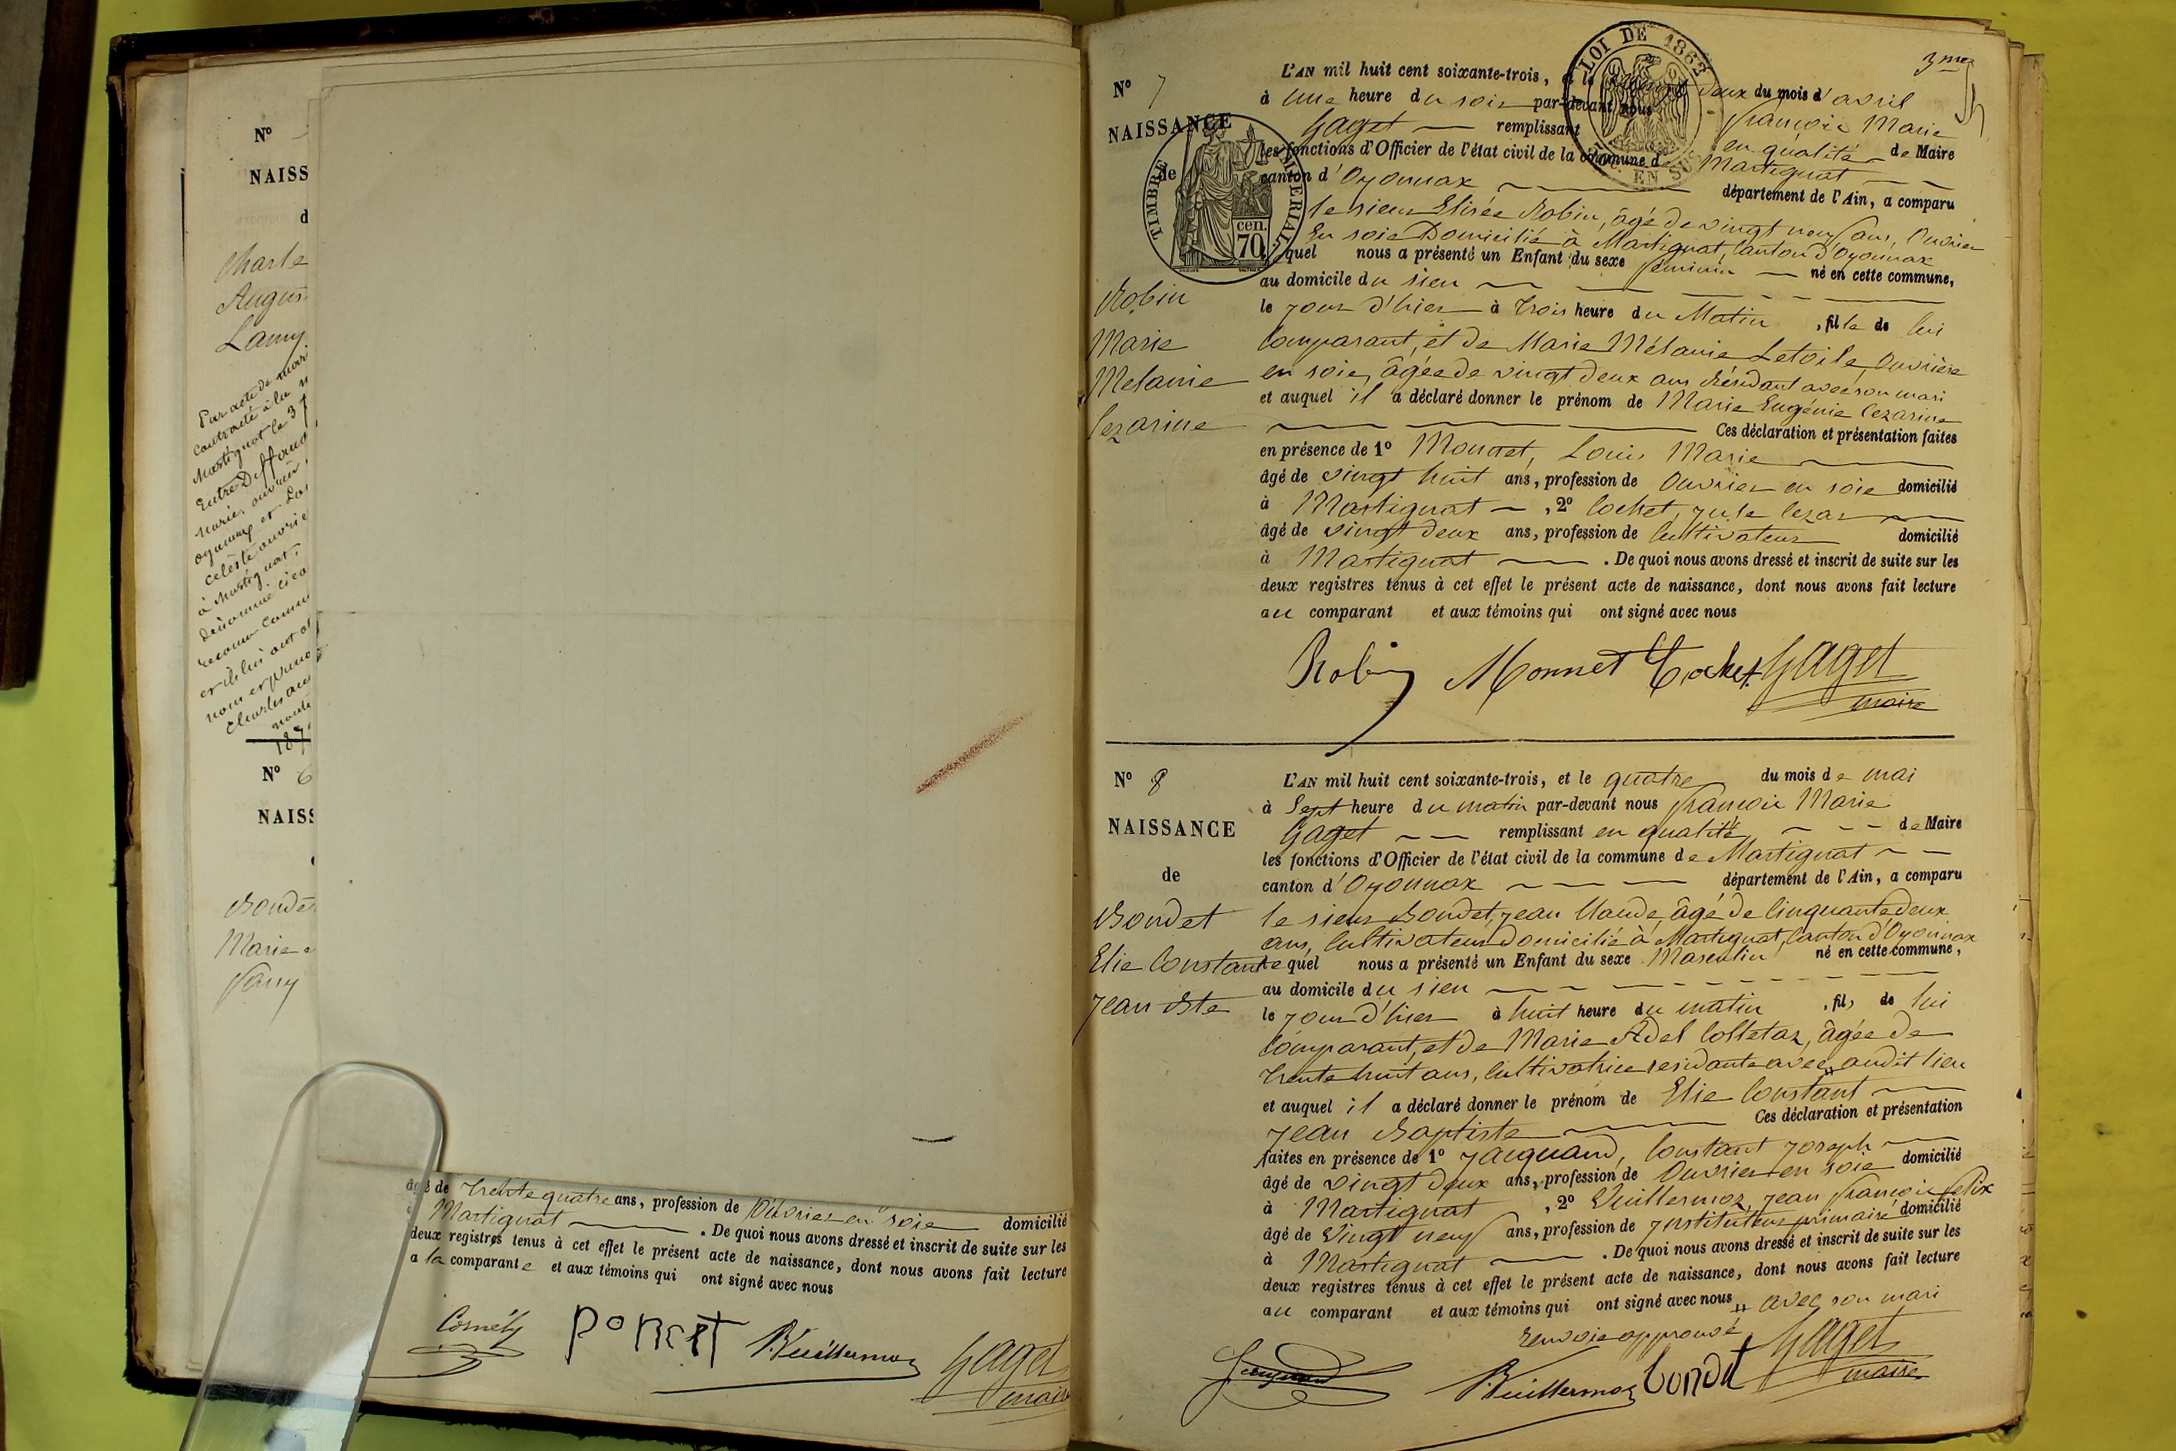 N°
NAISS
d
Charle
August
Lamy
Par acte de mar
contracté à la
Martignat le 3
Entre Diffond
Marie, ouvrier
oyonnax et
celeste ouvrie
à Martignat
denommé
nom et preno
Charles
187
N° 6
NAISS
Bondet
Marie
Fany
âgé de trente quatre ans, profession de Ouvrier en soie domicilié
Martignat . De quoi nous avons dressé et inscrit de suite sur les
deux registres tenus à cet effet le présent acte de naissance, dont nous avons fait lecture
a la comparante et aux témoins qui ont signé avec nous
Cornély Poncet Vuillermoz Gaget
maire
3me
N° 7
NAISSANCE
de
Robin
Marie
Melanie
Cezarine
TIMBRE IMPERIAL
70 cen.
LOI DE 1862
EN SUS
L'AN mil huit cent soixante-trois, et le deux du mois d'avril
à une heure du soir par-devant nous François Marie
Gaget remplissant en qualité de Maire
les fonctions d'Officier de l'état civil de la commune de Martignat
canton d'Oyonnax département de l'Ain, a comparu
le sieur Elisée Robin, âgé de vingt neuf ans, Ouvrier
En soie Domicilié à Martignat, Canton d'Oyonnax
lequel nous a présenté un Enfant du sexe feminin né en cette commune,
au domicile du sien
le jour d'hier à trois heure du Matin , fille de lui
Comparant, et de Marie Mélanie Letoile, Ouvrière
en soie, âgée de vingt deux ans Résidant avec son mari
et auquel il a déclaré donner le prénom de Marie Eugénie Cezarine
Ces déclaration et présentation faites
en présence de 1° Monnet, Louis Marie
âgé de vingt huit ans, profession de Ouvrier en soie domicilié
à Martignat , 2° Cochet, Jule Cezar
âgé de vingt deux ans, profession de Cultivateur domicilié
à Martignat . De quoi nous avons dressé et inscrit de suite sur les
deux registres tenus à cet effet le présent acte de naissance, dont nous avons fait lecture
au comparant et aux témoins qui ont signé avec nous
Robin Monnet Cochet Gaget
maire
N° 8
NAISSANCE
de
Bondet
Elie Constant
Jean Bte
L'AN mil huit cent soixante-trois, et le quatre du mois de mai
à Sept heure du matin par-devant nous François Marie
Gaget remplissant en qualité de Maire
les fonctions d'Officier de l'état civil de la commune de Martignat
canton d'Oyonnax département de l'Ain, a comparu
le sieur Bondet, Jean Claude, âgé de Cinquante deux
ans, Cultivateur domicilié à Martignat, Canton d'Oyonnax
lequel nous a présenté un Enfant du sexe Masculin né en cette commune,
au domicile du sien
le jour d'hier à huit heure du matin , fils de lui
Comparant, et de Marie Adel Colletaz, âgée de
trente huit ans, Cultivatrice residante avec " audit lieu
et auquel il a déclaré donner le prénom de Elie Constant
Jean Baptiste Ces déclaration et présentation
faites en présence de 1° Jacquand, Constant Joseph
âgé de vingt deux ans, profession de Ouvrier en soie domicilié
à Martignat , 2° Vuillermoz, Jean François Felix
âgé de Vingt neuf ans, profession de Instituteur primaire domicilié
à Martignat . De quoi nous avons dressé et inscrit de suite sur les
deux registres tenus à cet effet le présent acte de naissance, dont nous avons fait lecture
au comparant et aux témoins qui ont signé avec nous " avec son mari
renvoie approuvé
Jacquand Vuillermoz bondet Gaget
maire